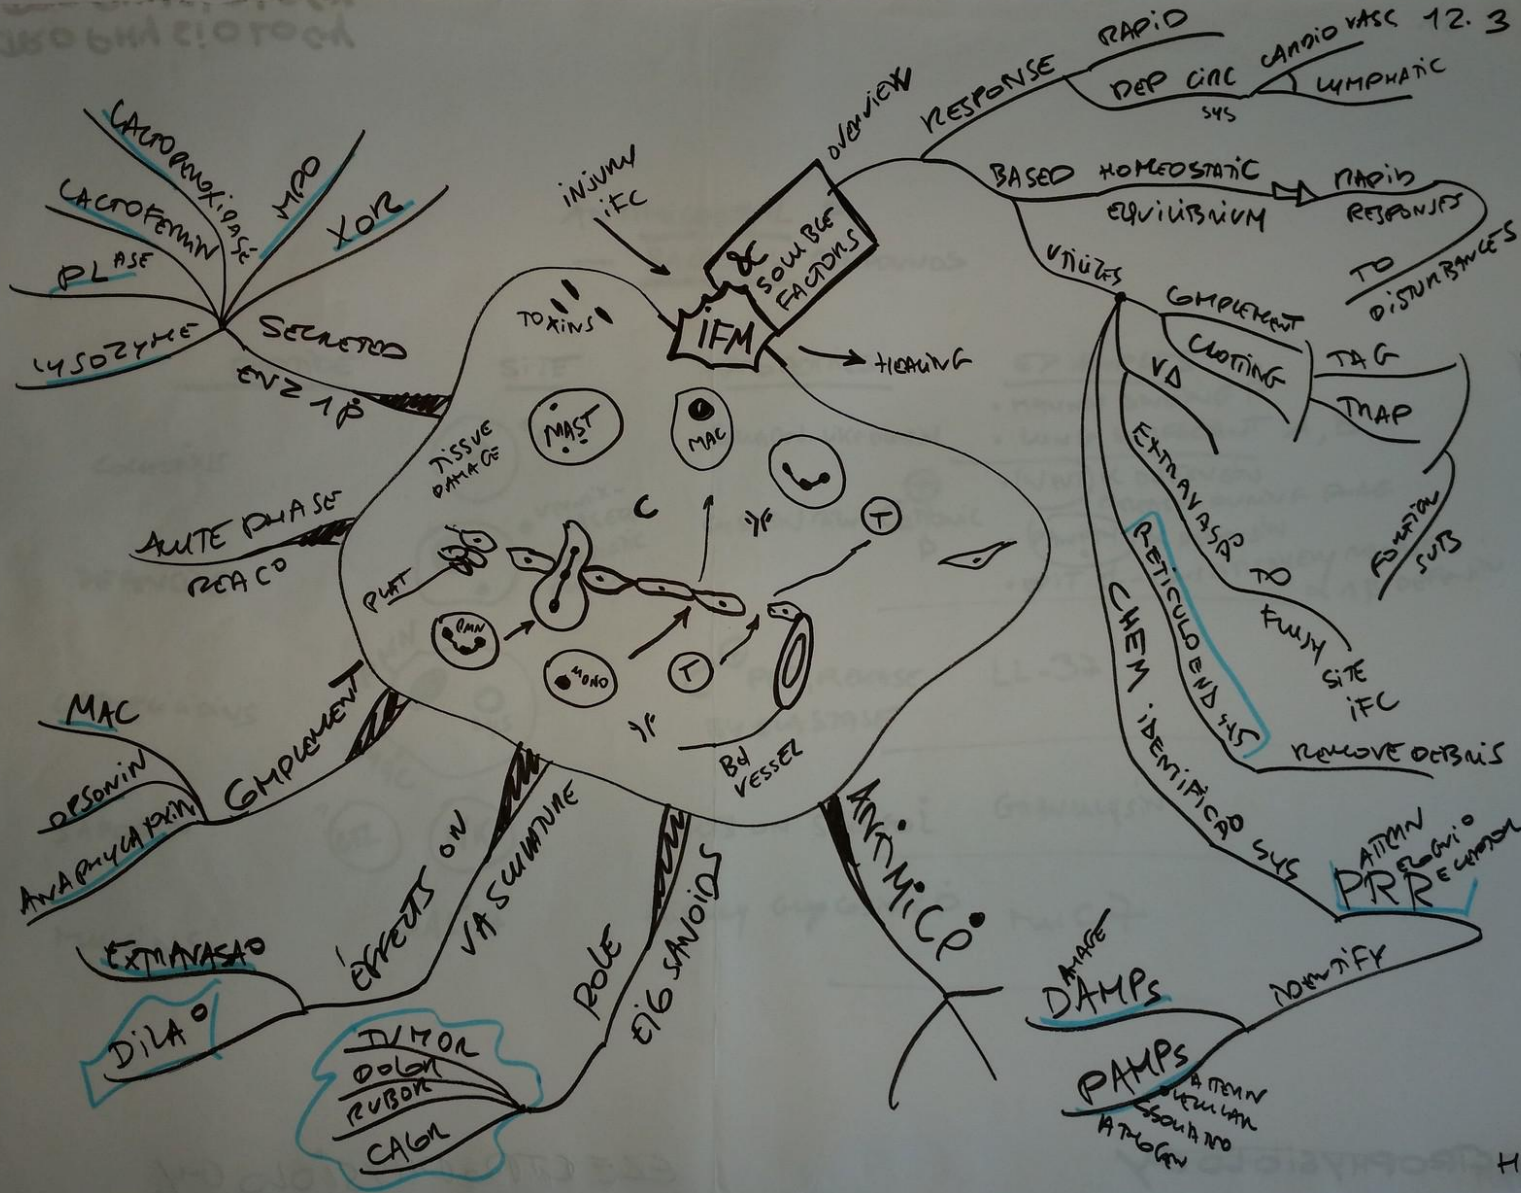 12.3
OVERVIEW
RESPONSE
RAPID
DEP CIRC
SYS
CARDIOVASC
LYMPHATIC
BASED HOMEOSTATIC
EQUILIBRIUM
RAPID
RESPONSES
TO
DISTURBANCES
UTILIZES
COMPLEMENT
CLOTTING
TAG
TRAP
FOREIGN
SUB
VD
EXTRAVASAO TO
FLUSH
SITE
IFC
RETICULOEND SYS
REMOVE DEBRIS
CHEM IDENTIFICAO SYS
PRR
ATTERN
ECOGNIO
ECEPTOR
IDENTIFY
DAMPs
AMAGE
PAMPs
ATTERN
OLECULAR
SSOCIATED
ATHOGEN
INJURY
IFC
IFM
& SOLUBLE
FACTORS
HEALING
TOXINS
MAST
MAC
TISSUE
DAMAGE
C
T
PLAT
PMN
MONO
T
BD
VESSEL
SECRETED
ENZ
LACTOPEROXIDASE
LACTOFERRIN
PLASE
LYSOZYME
MPO
XOR
ACUTE PHASE
REACO
COMPLEMENT
MAC
OPSONIN
ANAPHYLATOXIN
EFFECTS ON
VASCULATURE
EXTRAVASAO
DILAO
ROLE
EICOSANOIDS
TUMOR
DOLOR
RUBOR
CALOR
ANTIMIC
H